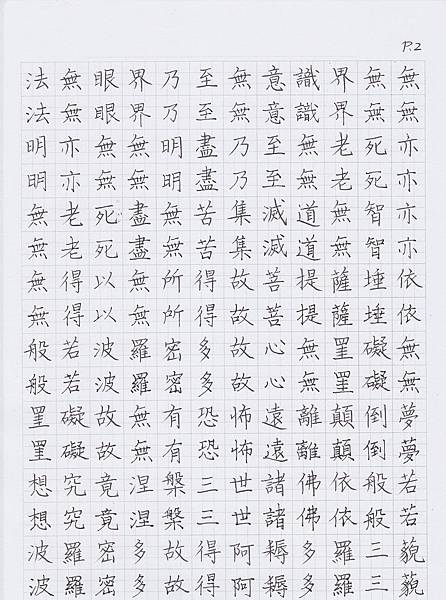 P.2
法無眼界乃至無意識界無無
法無眼界乃至無意識界無無
明亦無無明盡乃至無老死亦
明亦無無明盡乃至無老死亦
無老死盡無苦集滅道無智亦
無老死盡無苦集滅道無智亦
無得以無所得故菩提薩埵依
無得以無所得故菩提薩埵依
般若波羅密多故心無罣礙無
般若波羅密多故心無罣礙無
罣礙故無有恐怖遠離顛倒夢
罣礙故無有恐怖遠離顛倒夢
想究竟涅槃三世諸佛依般若
想究竟涅槃三世諸佛依般若
波羅密多故得阿耨多羅三藐
波羅密多故得阿耨多羅三藐